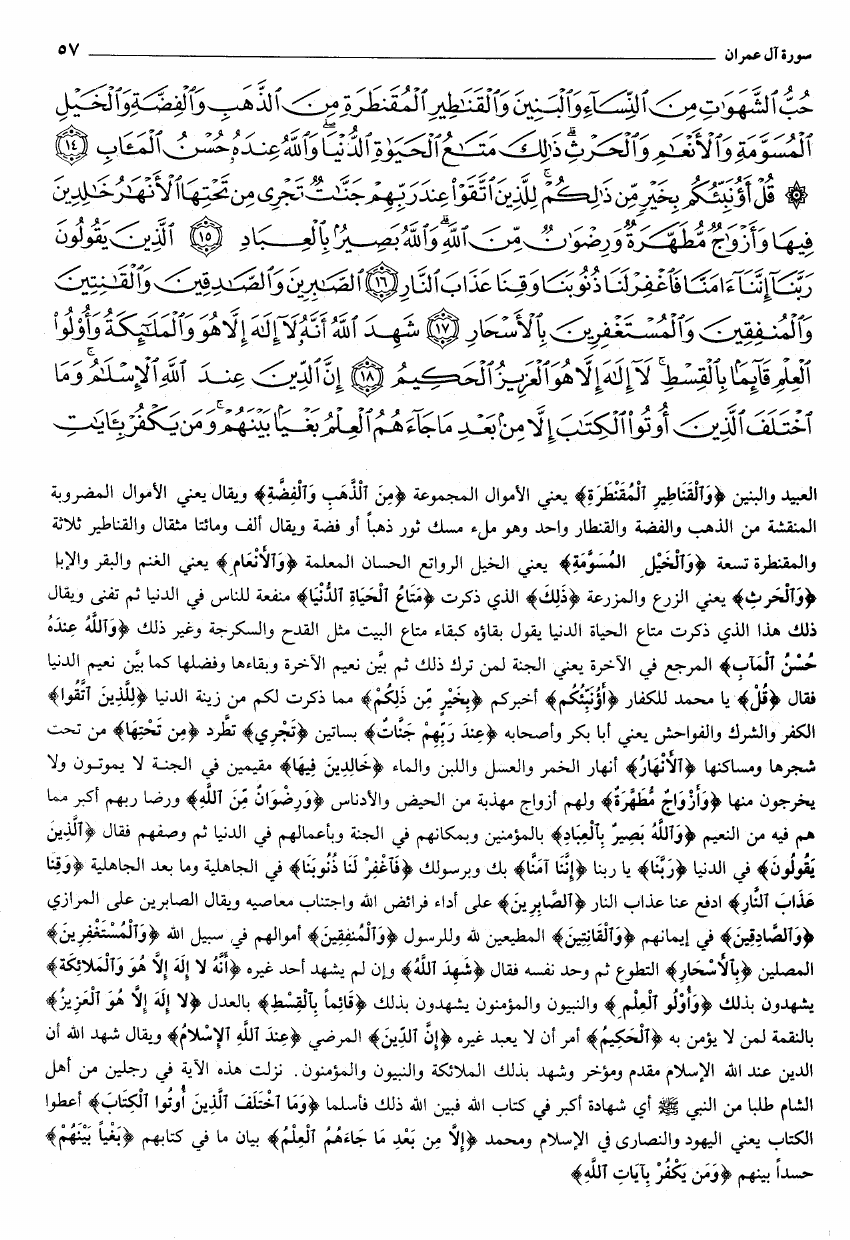 سورة آل عمران ٥٧
حُبُّ ٱلشَّهَوَٰتِ مِنَ ٱلنِّسَآءِ وَٱلْبَنِينَ وَٱلْقَنَٰطِيرِ ٱلْمُقَنطَرَةِ مِنَ ٱلذَّهَبِ وَٱلْفِضَّةِ وَٱلْخَيْلِ
ٱلْمُسَوَّمَةِ وَٱلْأَنْعَٰمِ وَٱلْحَرْثِ ۗ ذَٰلِكَ مَتَٰعُ ٱلْحَيَوٰةِ ٱلدُّنْيَا ۖ وَٱللَّهُ عِندَهُۥ حُسْنُ ٱلْمَـَٔابِ ١٤
۞ قُلْ أَؤُنَبِّئُكُم بِخَيْرٍ مِّن ذَٰلِكُمْ ۚ لِلَّذِينَ ٱتَّقَوْا۟ عِندَ رَبِّهِمْ جَنَّٰتٌ تَجْرِى مِن تَحْتِهَا ٱلْأَنْهَٰرُ خَٰلِدِينَ
فِيهَا وَأَزْوَٰجٌ مُّطَهَّرَةٌ وَرِضْوَٰنٌ مِّنَ ٱللَّهِ ۗ وَٱللَّهُ بَصِيرٌۢ بِٱلْعِبَادِ ١٥ ٱلَّذِينَ يَقُولُونَ
رَبَّنَآ إِنَّنَآ ءَامَنَّا فَٱغْفِرْ لَنَا ذُنُوبَنَا وَقِنَا عَذَابَ ٱلنَّارِ ١٦ ٱلصَّٰبِرِينَ وَٱلصَّٰدِقِينَ وَٱلْقَٰنِتِينَ
وَٱلْمُنفِقِينَ وَٱلْمُسْتَغْفِرِينَ بِٱلْأَسْحَارِ ١٧ شَهِدَ ٱللَّهُ أَنَّهُۥ لَآ إِلَٰهَ إِلَّا هُوَ وَٱلْمَلَٰٓئِكَةُ وَأُو۟لُوا۟
ٱلْعِلْمِ قَآئِمًۢا بِٱلْقِسْطِ ۚ لَآ إِلَٰهَ إِلَّا هُوَ ٱلْعَزِيزُ ٱلْحَكِيمُ ١٨ إِنَّ ٱلدِّينَ عِندَ ٱللَّهِ ٱلْإِسْلَٰمُ ۗ وَمَا
ٱخْتَلَفَ ٱلَّذِينَ أُوتُوا۟ ٱلْكِتَٰبَ إِلَّا مِنۢ بَعْدِ مَا جَآءَهُمُ ٱلْعِلْمُ بَغْيًۢا بَيْنَهُمْ ۗ وَمَن يَكْفُرْ بِـَٔايَٰتِ
العبيد والبنين ﴿وَٱلْقَنَاطِيرِ ٱلْمُقَنْطَرَةِ﴾ يعني الأموال المجموعة ﴿مِنَ ٱلذَّهَبِ وَٱلْفِضَّةِ﴾ ويقال يعني الأموال المضروبة
المنقشة من الذهب والفضة والقنطار واحد وهو ملء مسك ثور ذهباً أو فضة ويقال ألف ومائتا مثقال والقناطير ثلاثة
والمقنطرة تسعة ﴿وَٱلْخَيْلِ ٱلمُسَوَّمَةِ﴾ يعني الخيل الرواتع الحسان المعلمة ﴿وَٱلْأَنْعَامِ﴾ يعني الغنم والبقر والإبل
﴿وَٱلْحَرثِ﴾ يعني الزرع والمزرعة ﴿ذَلِكَ﴾ الذي ذكرت ﴿مَتَاعُ ٱلْحَيَاةِ ٱلدُّنْيَا﴾ منفعة للناس في الدنيا ثم تفنى ويقال
ذلك هذا الذي ذكرت متاع الحياة الدنيا يقول بقاؤه كبقاء متاع البيت مثل القدح والسكرجة وغير ذلك ﴿وَٱللَّهُ عِندَهُ
حُسْنُ ٱلْمَآبِ﴾ المرجع في الآخرة يعني الجنة لمن ترك ذلك ثم بيَّن نعيم الآخرة وبقاءها وفضلها كما بيَّن نعيم الدنيا
فقال ﴿قُلْ﴾ يا محمد للكفار ﴿أَؤُنَبِّئُكُم﴾ أخبركم ﴿بِخَيْرٍ مِّن ذَلِكُمْ﴾ مما ذكرت لكم من زينة الدنيا ﴿لِلَّذِينَ ٱتَّقَوا﴾
الكفر والشرك والفواحش يعني أبا بكر وأصحابه ﴿عِندَ رَبِّهِمْ جَنَّاتٌ﴾ بساتين ﴿تَجْرِي﴾ تطَّرد ﴿مِن تَحْتِهَا﴾ من تحت
شجرها ومساكنها ﴿ٱلْأَنْهَارُ﴾ أنهار الخمر والعسل واللبن والماء ﴿خَالِدِينَ فِيهَا﴾ مقيمين في الجنة لا يموتون ولا
يخرجون منها ﴿وَأَزْوَاجٌ مُّطَهَّرَةٌ﴾ ولهم أزواج مهذبة من الحيض والأدناس ﴿وَرِضْوَانٌ مِّنَ ٱللَّهِ﴾ ورضا ربهم أكبر مما
هم فيه من النعيم ﴿وَٱللَّهُ بَصِيرٌ بِٱلْعِبَادِ﴾ بالمؤمنين وبمكانهم في الجنة وبأعمالهم في الدنيا ثم وصفهم فقال ﴿ٱلَّذِينَ
يَقُولُونَ﴾ في الدنيا ﴿رَبَّنَا﴾ يا ربنا ﴿إِنَّنَا آمَنَّا﴾ بك وبرسولك ﴿فَٱغْفِرْ لَنَا ذُنُوبَنَا﴾ في الجاهلية وما بعد الجاهلية ﴿وَقِنَا
عَذَابَ ٱلنَّارِ﴾ ادفع عنا عذاب النار ﴿ٱلصَّابِرِينَ﴾ على أداء فرائض الله واجتناب معاصيه ويقال الصابرين على المرازي
﴿وَٱلصَّادِقِينَ﴾ في إيمانهم ﴿وَٱلْقَانِتِينَ﴾ المطيعين لله وللرسول ﴿وَٱلْمُنفِقِينَ﴾ أموالهم في سبيل الله ﴿وَٱلْمُسْتَغْفِرِينَ﴾
المصلين ﴿بِٱلْأَسْحَارِ﴾ التطوع ثم وحد نفسه فقال ﴿شَهِدَ ٱللَّهُ﴾ وإن لم يشهد أحد غيره ﴿أَنَّهُ لا إِلَهَ إِلَّا هُوَ وَٱلْمَلائِكَةُ﴾
يشهدون بذلك ﴿وَأُوْلُو ٱلْعِلْمِ﴾ والنبيون والمؤمنون يشهدون بذلك ﴿قَائِماً بِٱلْقِسْطِ﴾ بالعدل ﴿لا إِلَهَ إِلَّا هُوَ ٱلْعَزِيزُ﴾
بالنقمة لمن لا يؤمن به ﴿ٱلْحَكِيمُ﴾ أمر أن لا يعبد غيره ﴿إِنَّ ٱلدِّينَ﴾ المرضي ﴿عِندَ ٱللَّهِ ٱلإِسْلامُ﴾ ويقال شهد الله أن
الدين عند الله الإسلام مقدم ومؤخر وشهد بذلك الملائكة والنبيون والمؤمنون. نزلت هذه الآية في رجلين من أهل
الشام طلبا من النبي ﷺ أي شهادة أكبر في كتاب الله فبين الله ذلك فأسلما ﴿وَمَا ٱخْتَلَفَ ٱلَّذِينَ أُوتُوا ٱلْكِتَابَ﴾ أعطوا
الكتاب يعني اليهود والنصارى في الإسلام ومحمد ﴿إِلَّا مِن بَعْدِ مَا جَاءَهُمُ ٱلْعِلْمُ﴾ بيان ما في كتابهم ﴿بَغْياً بَيْنَهُمْ﴾
حسداً بينهم ﴿وَمَن يَكْفُرْ بِآيَاتِ ٱللَّهِ﴾